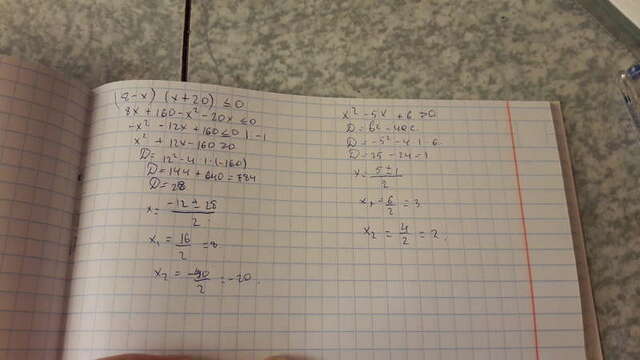 (8-x)(x+20) ≤ 0
8x + 160 - x² - 20x ≤ 0
-x² - 12x + 160 ≤ 0 | -1
x² + 12x - 160 ≥ 0
D = 12² - 4·1·(-160)
D = 144 + 640 = 784
D = 28
x = (-12 ± 28)/2
x₁ = 16/2 = 8
x₂ = -40/2 = -20.
x² - 5x + 6 ≥ 0
D = b² - 4ac
D = -5² - 4·1·6
D = 25 - 24 = 1
x = (5 ± 1)/2
x₁ = 6/2 = 3
x₂ = 4/2 = 2.